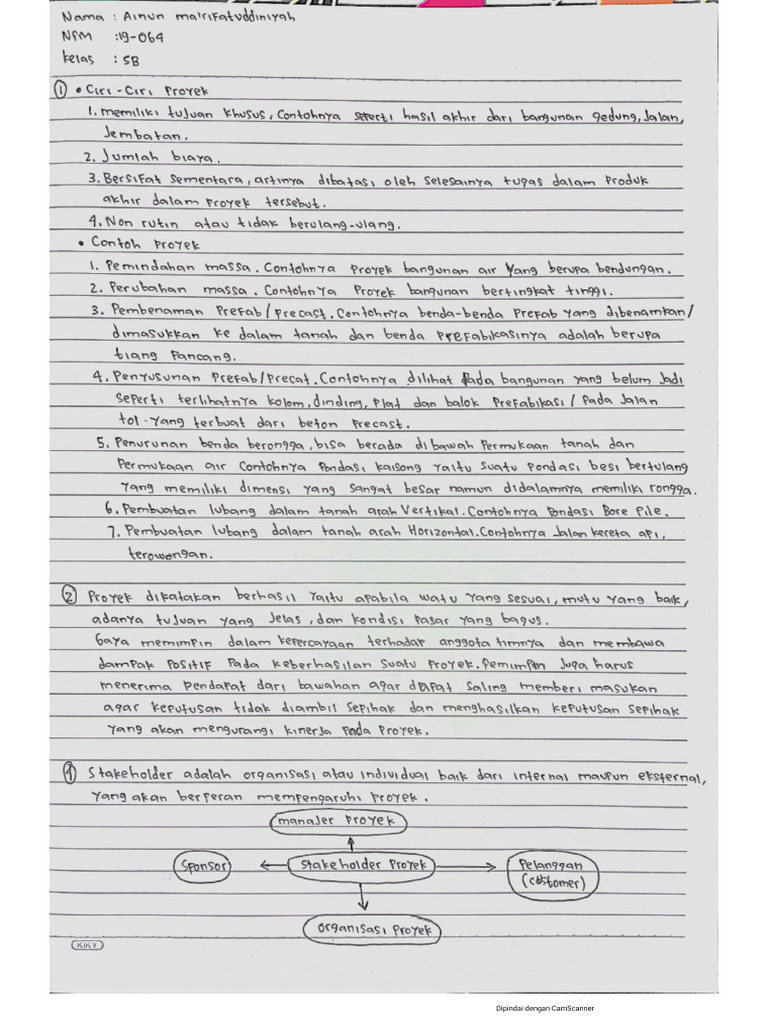 Nama : Ainun ma'rifatuddiniyah
NPM :19-064
Kelas : 5B
① • Ciri-Ciri Proyek
1. memiliki tujuan khusus, Contohnya seperti hasil akhir dari bangunan gedung, Jalan,
Jembatan.
2. Jumlah biaya.
3. Bersifat sementara, artinya dibatasi oleh selesainya tugas dalam Produk
akhir dalam Proyek tersebut.
4. Non rutin atau tidak berulang-ulang.
• Contoh Proyek
1. Pemindahan massa. Contohnya Proyek bangunan air yang berupa bendungan.
2. Perubahan massa. Contohnya Proyek bangunan bertingkat tinggi.
3. Pembenaman Prefab/Precast. Contohnya benda-benda Prefab yang dibenamkan/
dimasukkan ke dalam tanah dan benda Prefabikasinya adalah berupa
tiang Pancang.
4. Penyusunan Prefab/Precat. Contohnya dilihat Pada bangunan yang belum Jadi
seperti terlihatnya kolom, dinding, Plat dan balok Prefabikasi / Pada Jalan
tol. yang terbuat dari beton Precast.
5. Penurunan benda berongga, bisa berada dibawah Permukaan tanah dan
Permukaan air Contohnya Pondasi kaisong yaitu suatu Pondasi besi bertulang
yang memiliki dimensi yang sangat besar namun didalamnya memiliki rongga.
6. Pembuatan lubang dalam tanah arah Vertikal. Contohnya Pondasi Bore Pile.
7. Pembuatan lubang dalam tanah arah Horizontal. Contohnya Jalan kereta api,
terowongan.
② Proyek dikatakan berhasil yaitu apabila watu yang sesuai, mutu yang baik,
adanya tujuan yang Jelas, dan kondisi Pasar yang bagus.
Gaya memimpin dalam kepercayaan terhadap anggota timnya dan membawa
dampak Positif Pada keberhasilan suatu Proyek. Pemimpin Juga harus
menerima Pendapat dari bawahan agar dapat saling memberi masukan
agar keputusan tidak diambil sepihak dan menghasilkan keputusan sepihak
yang akan mengurangi kinerja Pada Proyek.
④ Stakeholder adalah organisasi atau individual baik dari internal maupun eksternal,
yang akan berperan mempengaruhi Proyek.
manajer Proyek
Sponsor
Stakeholder Proyek
Pelanggan
(customer)
Organisasi Proyek
KIKY
Dipindai dengan CamScanner